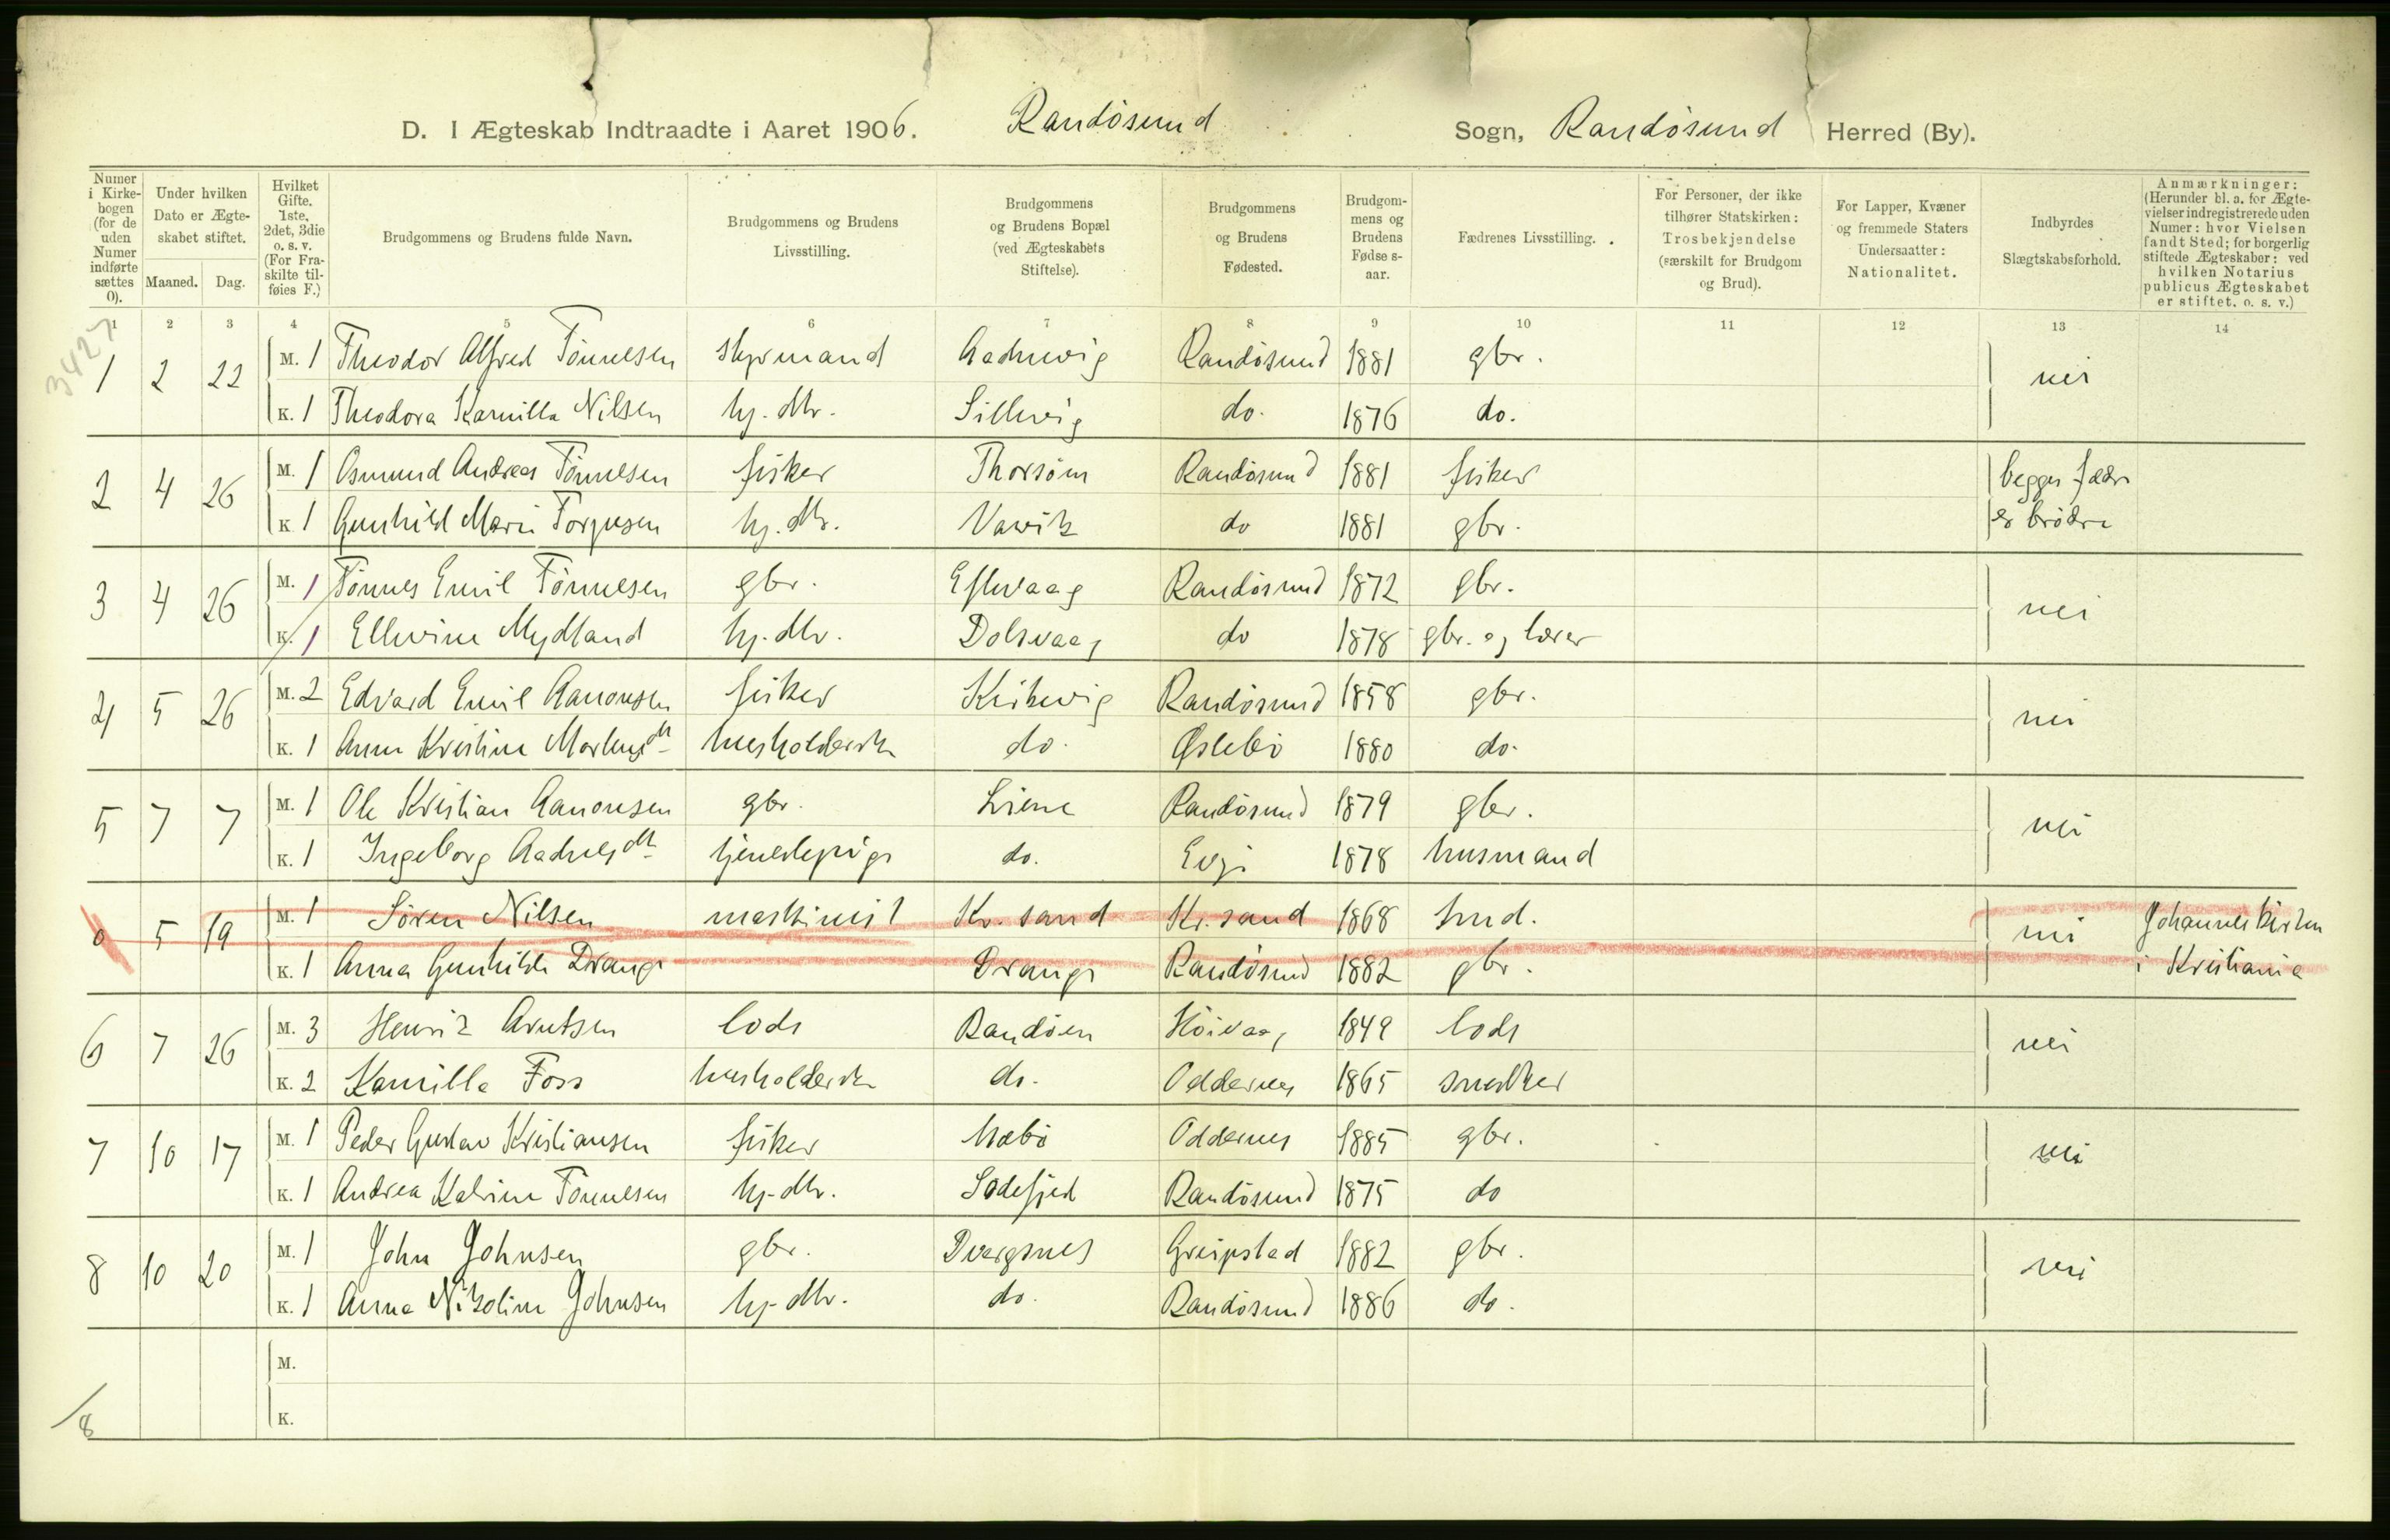 D. I Ægteskab Indtraadte i Aaret 1906. Randösund Sogn, Randösund Herred (By).
Numer i Kirkebogen (for de uden Numer indførte sættes 0).
Under hvilken Dato er Ægteskabet stiftet.
Maaned. Dag.
Hvilket Gifte. 1ste, 2det, 3die o. s. v. (For Fraskilte tilføies F.)
Brudgommens og Brudens fulde Navn.
Brudgommens og Brudens Livsstilling.
Brudgommens og Brudens Bopæl (ved Ægteskabets Stiftelse).
Brudgommens og Brudens Fødested.
Brudgommens og Brudens Fødselsaar.
Fædrenes Livsstilling.
For Personer, der ikke tilhører Statskirken: Trosbekjendelse (særskilt for Brudgom og Brud).
For Lapper, Kvæner og fremmede Staters Undersaatter: Nationalitet.
Indbyrdes Slægtskabsforhold.
Anmærkninger: (Herunder bl. a. for Ægtevielser indregistrerede uden Numer: hvor Vielsen fandt Sted; for borgerlig stiftede Ægteskaber: ved hvilken Notarius publicus Ægteskabet er stiftet. o. s. v.)
1 2 3 4 5 6 7 8 9 10 11 12 13 14
3427
1 2 22 M. 1 Theodor Alfred Tönnesen styrmand Aadnevig Randösund 1881 gbr. nei
K. 1 Theodora Kamilla Nilsen hj. dtr. Sillevig do. 1876 do.
2 4 26 M. 1 Osmund Andreas Tönnesen fisker Thorsöm Randösund 1881 fisker begges fædre
K 1 Gunhild Marie Torjusen hj. dtr. Vavik do 1881 gbr. er brödre
3 4 26 M. 1 Tönnes Emil Tönnesen gbr. Eftevaag Randösund 1872 gbr. nei
K. 1 Ellevine Mydland hj. dtr. Dolsvaag do 1878 gbr. og lærer
4 5 26 M. 2 Edvard Emil Aanonsen fisker Kirkevig Randösund 1858 gbr. nei
K. 1 Anne Kristine Martensdtr husholderske do. Øslebö 1880 do.
5 7 7 M. 1 Ole Kristian Aanonsen gbr. Liene Randösund 1879 gbr. nei
K. 1 Ingeborg Aadnesdtr tjenestepige do. Evje 1878 husmand
0 5 19 M. 1 Sören Nilsen maskinist Kr. sand Kr. sand 1868 smd. nei Johanneskirken
K. 1 Anna Gunhilde Drange Drange Randösund 1882 gbr. i Kristiania
6 7 26 M. 3 Henrik Arntsen lods Randöen Höivaag 1849 lods nei
K. 2 Kamilla Foss husholderske do. Oddernes 1865 snedker
7 10 17 M. 1 Peder Gustav Kristiansen fisker Mæbö Oddernes 1885 gbr. nei
K. 1 Andrea Katrine Tönnesen hj. dtr. Sodefjed Randösund 1875 do
8 10 20 M. 1 John Johnsen gbr. Dvergsnes Greipstad 1882 gbr. nei
K. 1 Anna Nikoline Johnsen hj. dtr. do. Randösund 1886 do.
M.
K.
/8